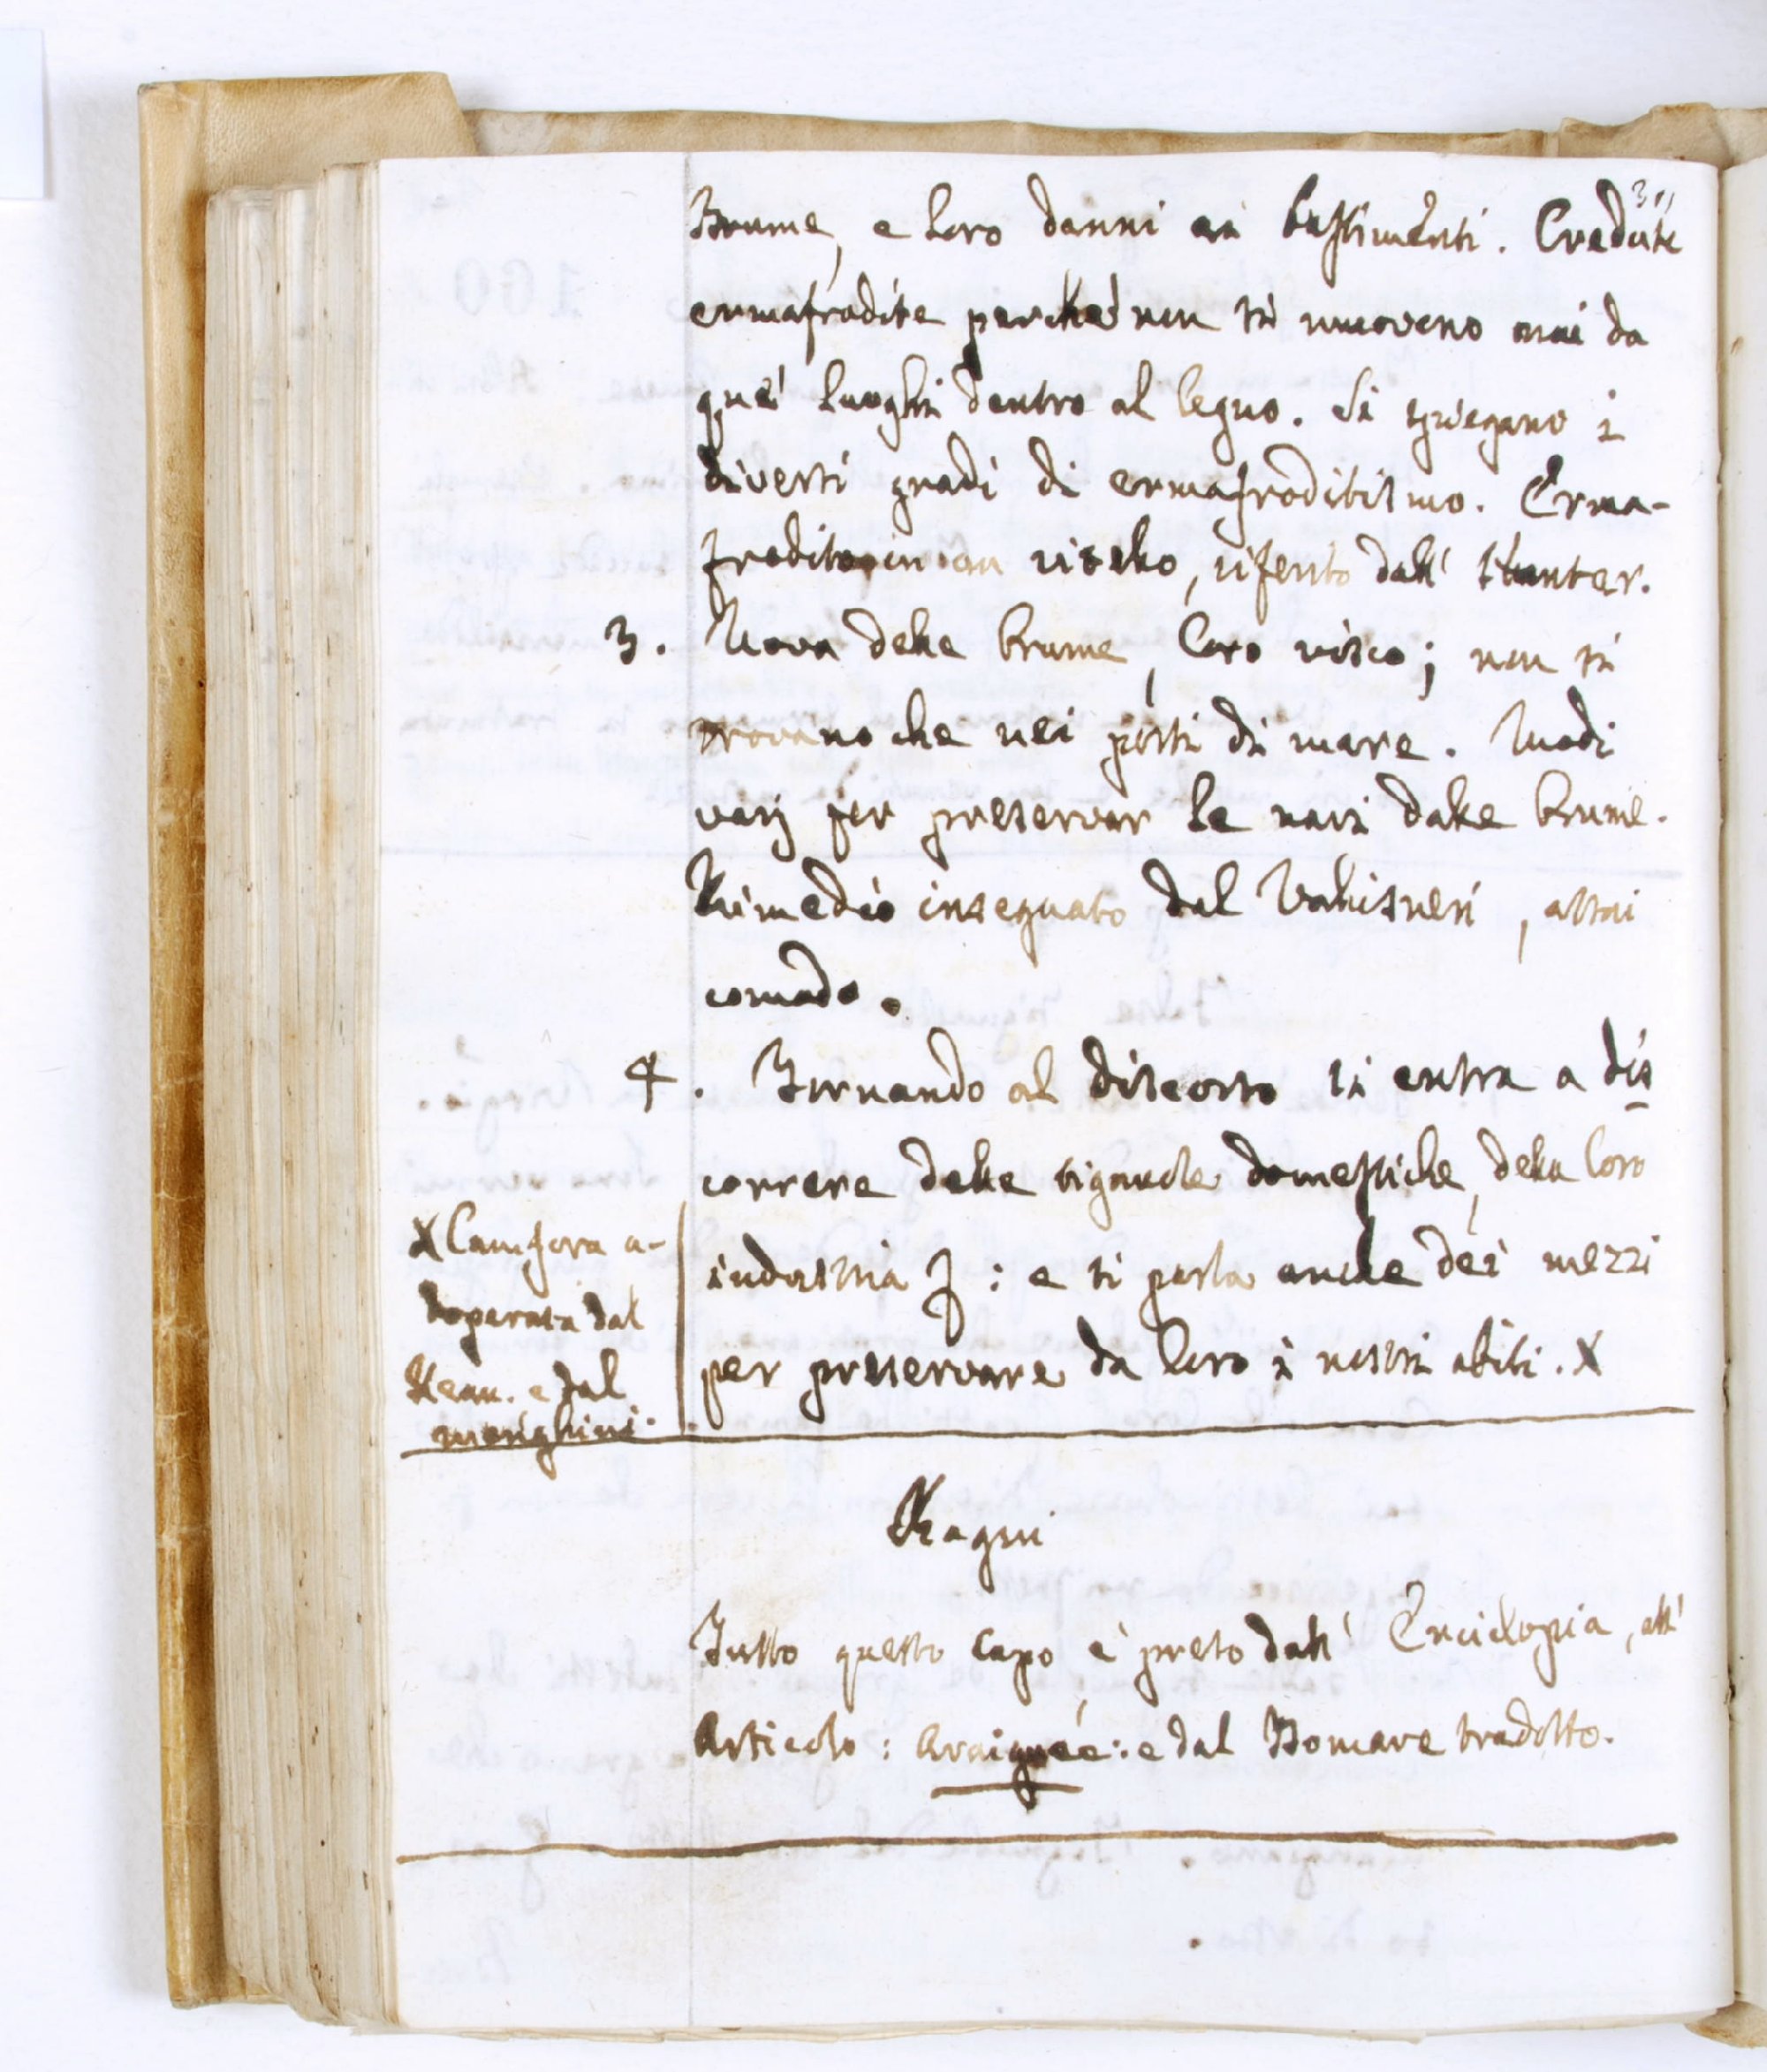 Brume, e loro danni ai bastimenti. Credute
ermafrodite perché non si muovono mai da
que' luoghi dentro al legno. Si spiegano i
diversi gradi di ermafroditismo. Erma-
frodito in un vitello, riferito dall' Hunter.
3. Uova delle brume, loro visco; non si
trovano che nei porti di mare. Modi
varj per preservar le navi dalle brume.
Rimedio insegnato dal Vallisneri, assai
comodo.
4. Tornando al discorso si entra a dis
correre delle tignuole domestiche, della loro
industria : e si parla anche dei mezzi
per preservare da loro i nostri abiti. X
X Canfora a-
doperata dal
Reau. e dal
menghini.
Ragni
Tutto questo capo è preso dall' Enciclopia, all'
Articolo: Araignée: e dal Bomare tradotto.